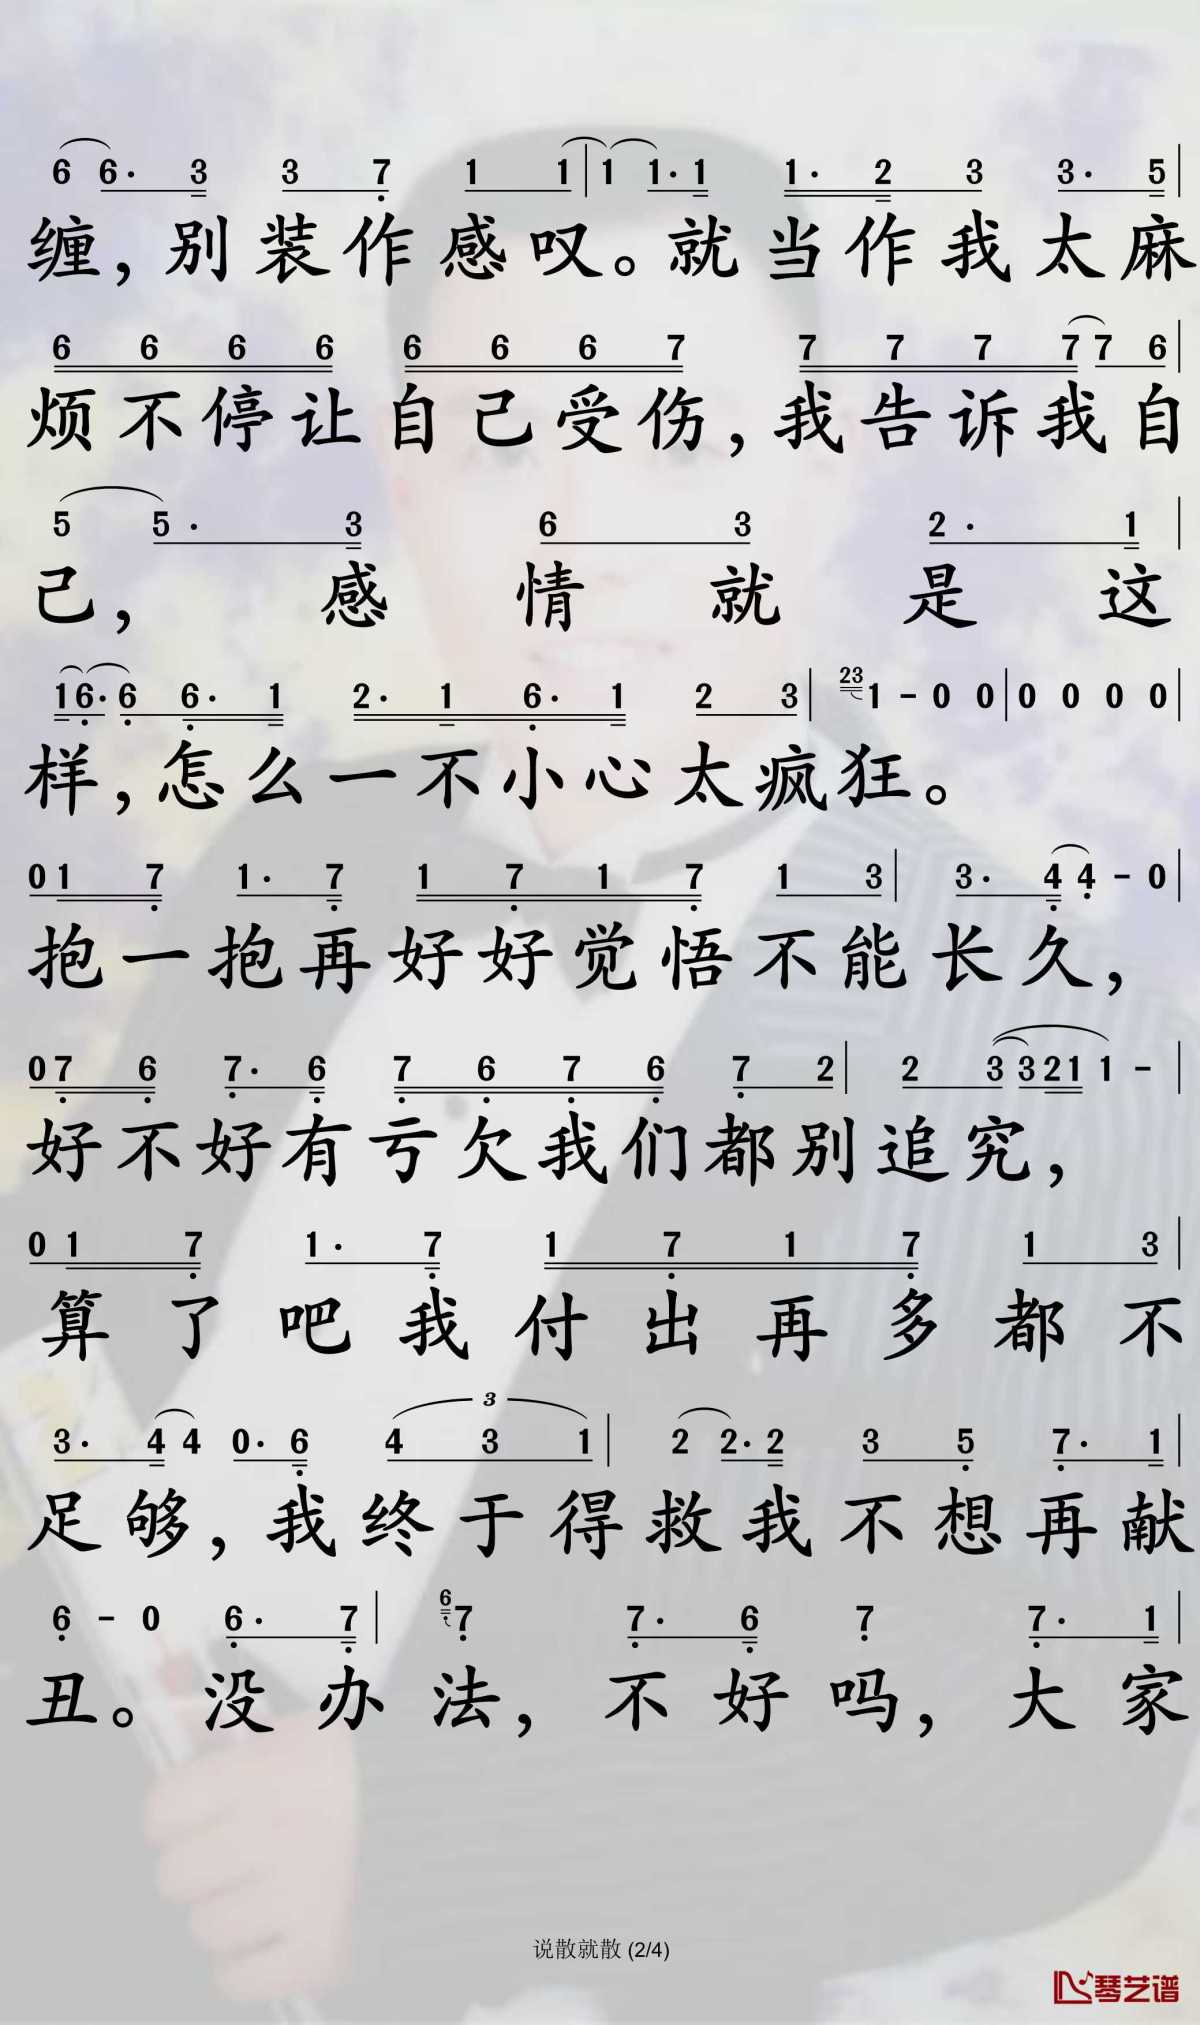 6 6· 3 3 7 1 1 | 1 1· 1 1· 2 3 3· 5 |
缠，别装作感叹。就当作我太麻
6 6 6 6 6 6 6 7 7 7 7 7 7 6 |
烦不停让自己受伤，我告诉我自
5 5· 3 6 3 2· 1 |
己，感情就是这
1 6· 6 6· 1 2· 1 6· 1 2 3 | 23 1 - 0 0 | 0 0 0 0 |
样，怎么一不小心太疯狂。
0 1 7 1· 7 1 7 1 7 1 3 | 3· 4 4 - 0 |
抱一抱再好好觉悟不能长久，
0 7 6 7· 6 7 6 7 6 7 2 | 2 3 3 2 1 1 - |
好不好有亏欠我们都别追究，
0 1 7 1· 7 1 7 1 7 1 3 |
算了吧我付出再多都不
3· 4 4 0· 6 4 3 1 | 2 2· 2 3 5 7· 1 |
3
足够，我终于得救我不想再献
6 - 0 6· 7 | 6 7 7· 6 7 7· 1 |
丑。没办法，不好吗，大家
说散就散 (2/4)
琴艺谱